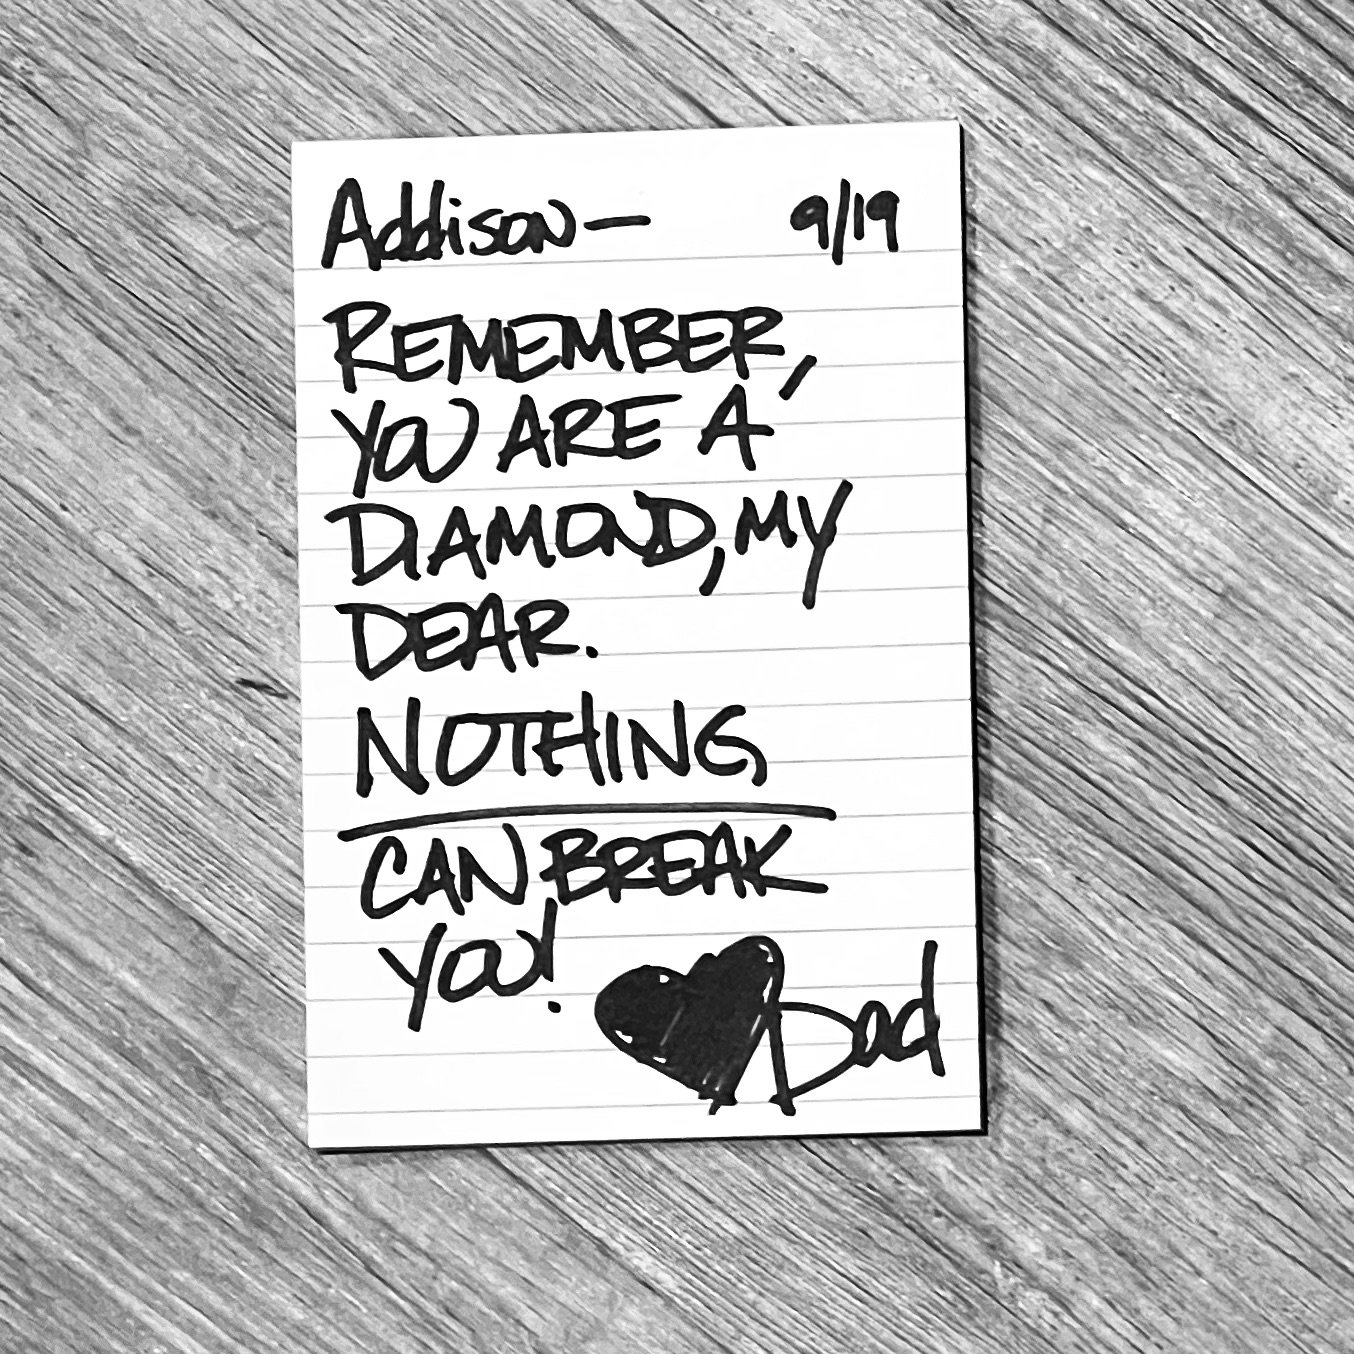 Addison— 9/19
REMEMBER,
YOU ARE A
DIAMOND, MY
DEAR.
NOTHING
CAN BREAK
YOU!
Dad